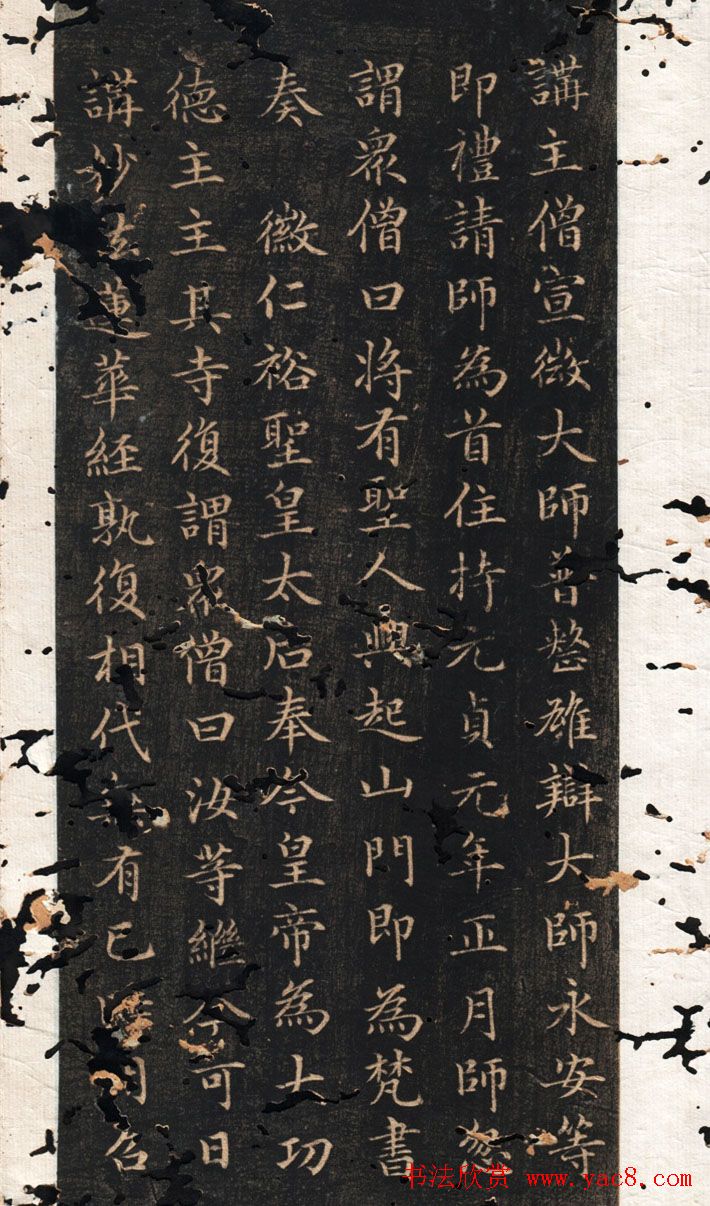 講主僧宣微大師普整雄辯大師永安等
即禮請師為首住持元貞元年正月師忽
謂眾僧曰將有聖人興起山門即為梵書
奏 徽仁裕聖皇太后奉今皇帝為大功
德主主其寺復謂眾僧曰汝等繼今可日
講妙法蓮華經孰復相代無有已時用召
书法欣赏 www.yac8.com